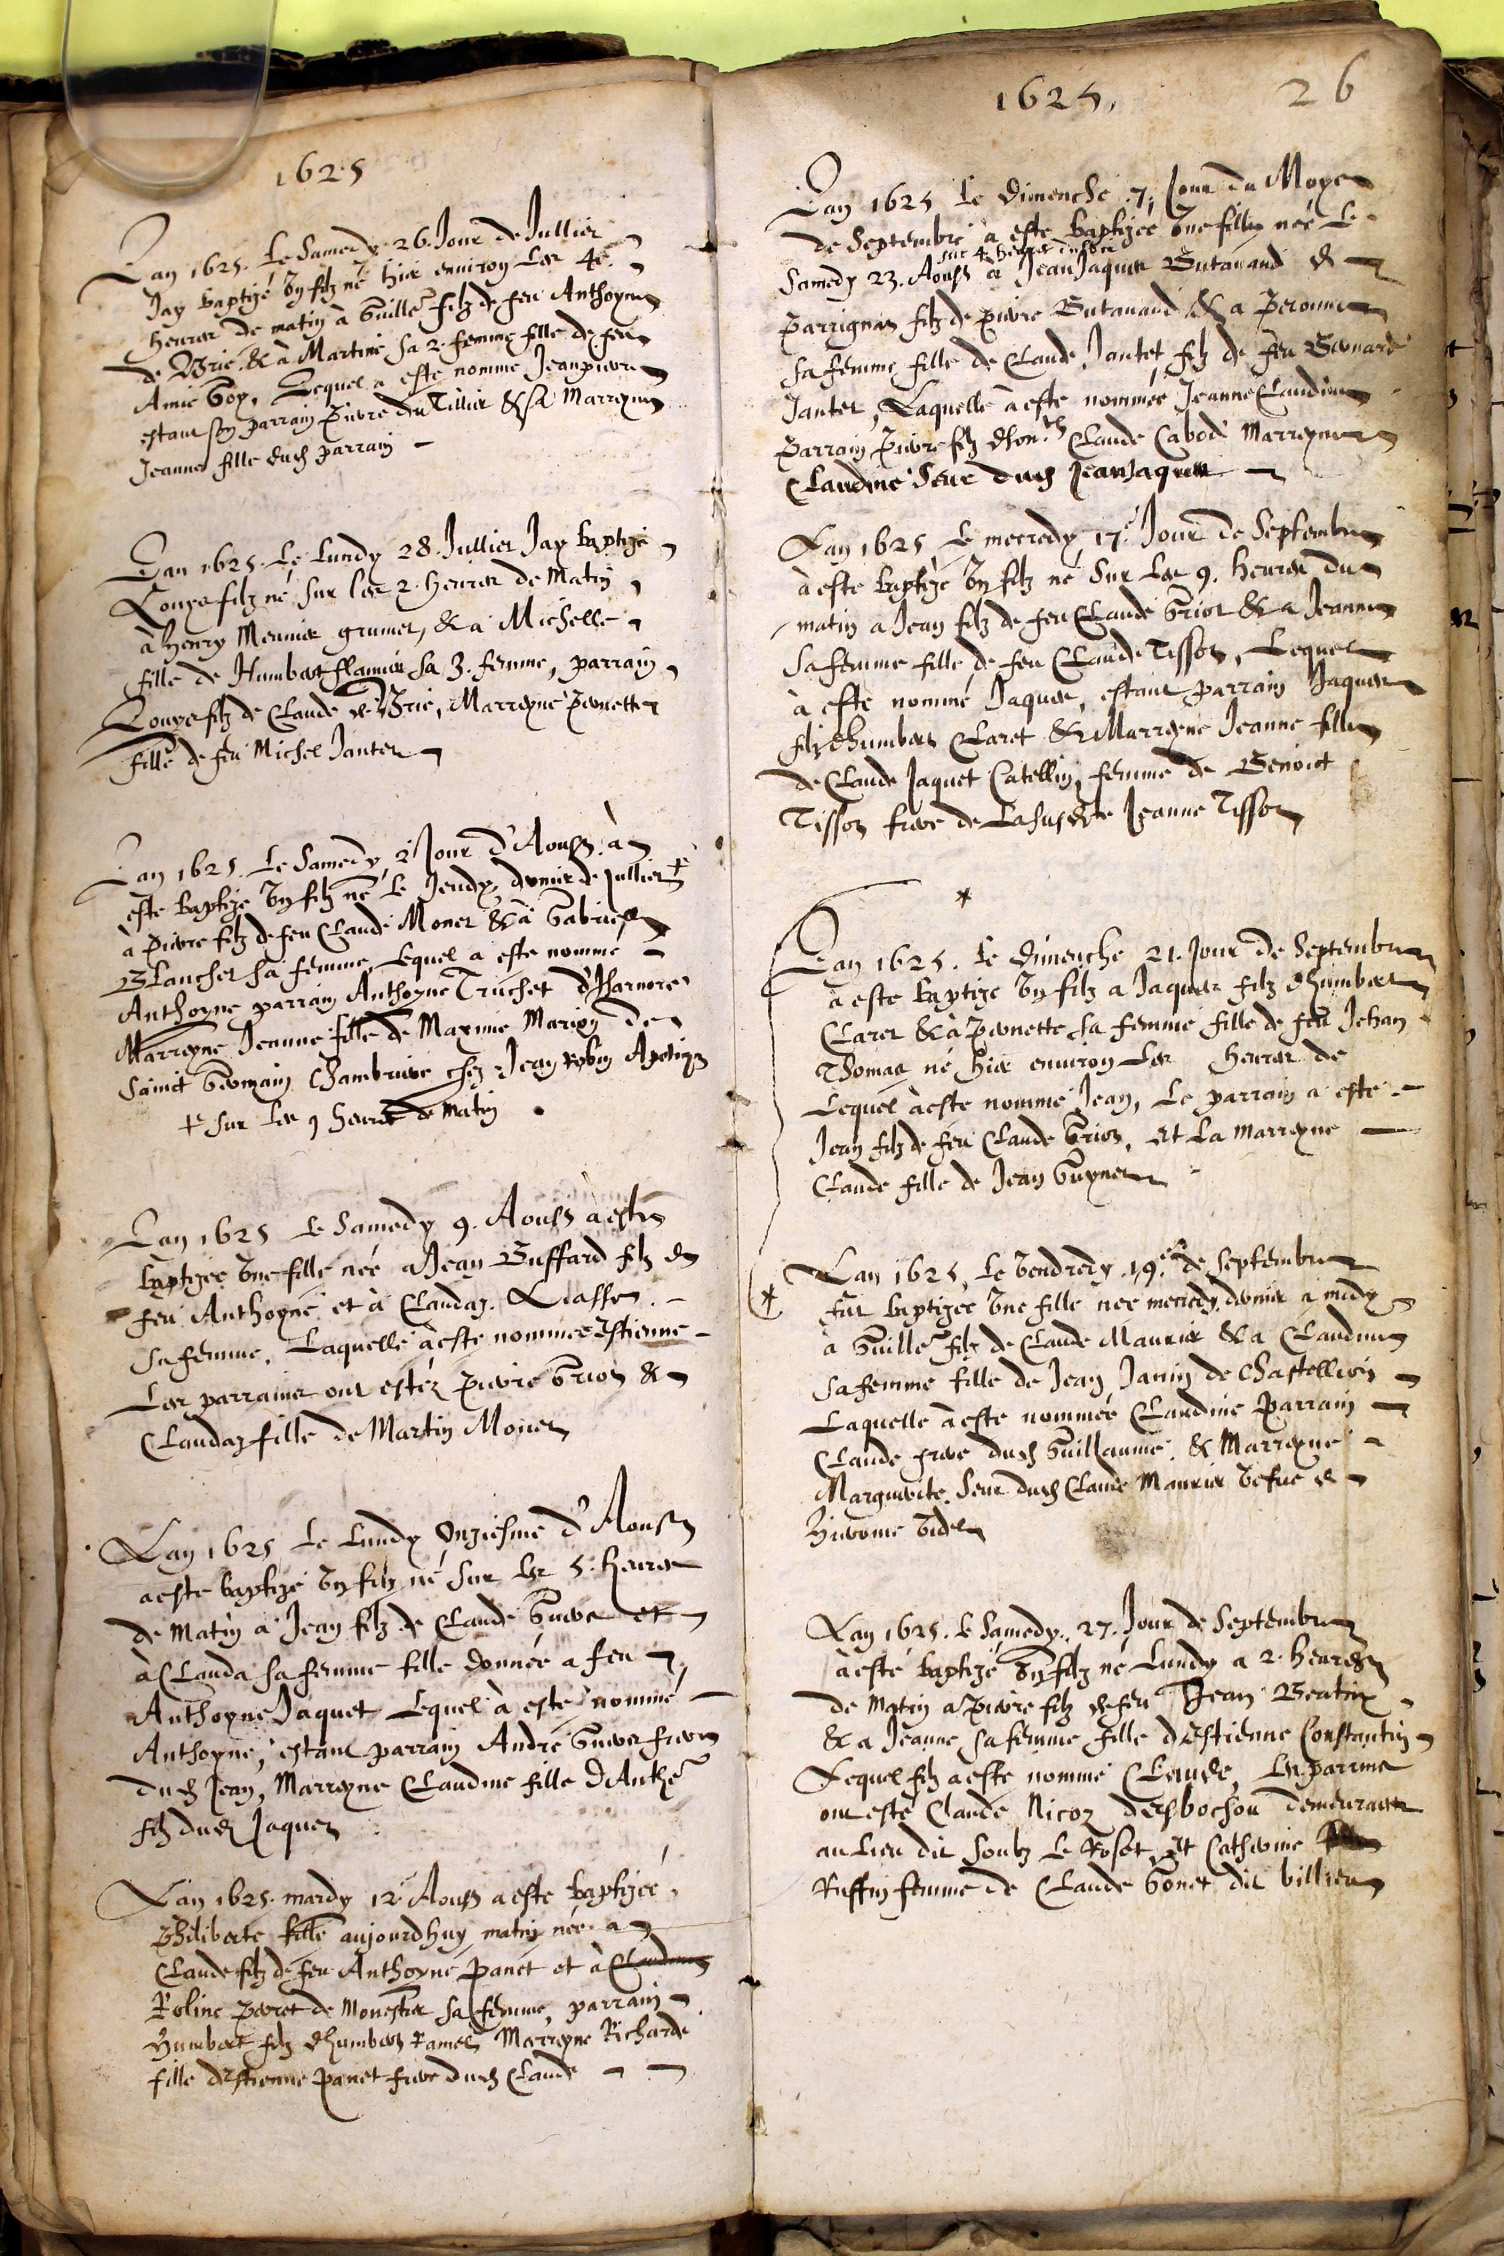 1625
Lan 1625. Le Samedy 26. Jour de Jullier
Jay baptizé Un filz né hier environ Les 4e.
heures de matin à Guille filz de feu Anthoyne
de Brie, & à Martine sa 2. femme fille de feu
Amie Goy, Lequel a esté nommé Jeanpierre
estant son parrain Pierre du Tillier & sa Marreyne
Jeanne fille dud parrain
Lan 1625. Le Lundy 28. Jullier Jay baptizé
Louys filz né sur les 2. heures de Matin
à Henry Meunier grumet, & à Michelle
fille de Humbert flamier sa 3. femme, parrain
Louys filz de Claude de Brie, Marreyne Pernette
fille de feu Michel Jantet
Lan 1625. Le Samedy 2e Jour d'Aoust à
esté baptizé Un filz né Le Jeudy dernier de Jullier +
à Pierre filz de feu Claude Monet & à Gabrielle
Blanchet sa femme Lequel a esté nommé
Anthoyne parrain Anthoyne Truchet d'Isarnore
Marreyne Jeanne fille de Maxime Marion de
Sainct Germain Chambriere chez Jean Robin
+ sur Les 9 heures de Matin
Lan 1625 Le Samedy 9. Aoust à esté
baptizée Une fille née a Jean Buffard filz de
feu Anthoyne et à Claudaz
sa femme. Laquelle à esté nommée Estienne
Les parraines ont estéz Pierre Griot &
Claudaz fille de Martin Monet
Lan 1625 Le Lundy Onziesme d'Aoust
a esté baptizé Un filz né sur les 5. heures
de Matin à Jean filz de Claude et
à Clauda sa femme fille donnée a feu
Anthoyne Jaquet Lequel à esté nommé
Anthoyne, estant parrain André frere
dud Jean, Marreyne Claudine fille D Anthe
filz dud Jaquet
Lan 1625. mardy 12e Aoust a esté baptizée
Philiberte fille aujourdhuy matin née a
Claude filz de feu Anthoyne Panet et à
Roline Perret de Monestier sa femme, parrain
Humbert filz dhumbert Ramel Marreyne Richarde
fille d'Estienne Panet frere dud Claude
1625. 26
Lan 1625 Le Dimenche .7. Jour du Moys
de Septembre à esté baptizée Une fille née Le
sur 4. heures du soir
Samedy 23. Aoust à Jean Jaques Butavand de
Parrignas filz de Pierre Butavand & a Peronne
sa femme fille de Claude Jantet filz de feu Bernard
Jantet, Laquelle à esté nommée Jeanne Claudine
Parrain Pierre filz dhon. Claude Cabod Marreyne
Claudine Seur dud Jean Jaques
Lan 1625 Le mecredy 17.e Jour de Septembre
à esté baptizé Un filz né Sur Les 9. heures du
matin a Jean filz de feu Claude Griot & a Jeanne
sa femme fille de feu Claude Tissot, Lequel
à esté nommé Jaques, estant parrain Jaques
filz dhumbert Claret & Marreyne Jeanne fille
de Claude Jaquet Catellin, femme de Benoict
Tissot frere de La susdte Jeanne Tissot
*
Lan 1625. Le Dimenche 21. Jour de Septembre
à esté baptizé Un filz a Jaques filz dhumbert
Claret & à Pernette sa femme fille de feu Jehan
Thomas né hier environ Les heures de
Lequel à esté nommé Jean, Le parrain a esté
Jean filz de feu Claude Griot, et La marreyne
Claude fille de Jean Guynet
* Lan 1625, Le Vendredy .19.e de Septembre
fut baptizée Une fille née mecredy dernier a midy
à Guille filz de Claude Maurier & a Claudine
sa femme fille de Jean Janin de Chastellion
Laquelle à esté nommée Claudine Parrain
Claude frere dud Guillaume, & Marreyne
Marguerite Seur dud Claude Maurier Vefve de
Hierome Videt
Lan 1625. Le Samedy. 27. Jour de Septembre
à esté baptizé Un filz né Lundy a 2. heures
de Matin a Pierre filz de feu Jean Beatrix
& a Jeanne sa femme fille d'Estienne Constantin
Lequel filz a esté nommé Claude, Les parrins
ont esté Claude Nicoz demeurant
au Lieu dit Soubz Le Roset, Et Catherine
Ruffin femme de Claude Gonet dit billien